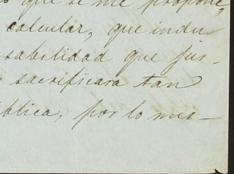 que se me propone,
calcular, que indu
sabilidad que jus-
sacrificara tan
blica, por lo mis-